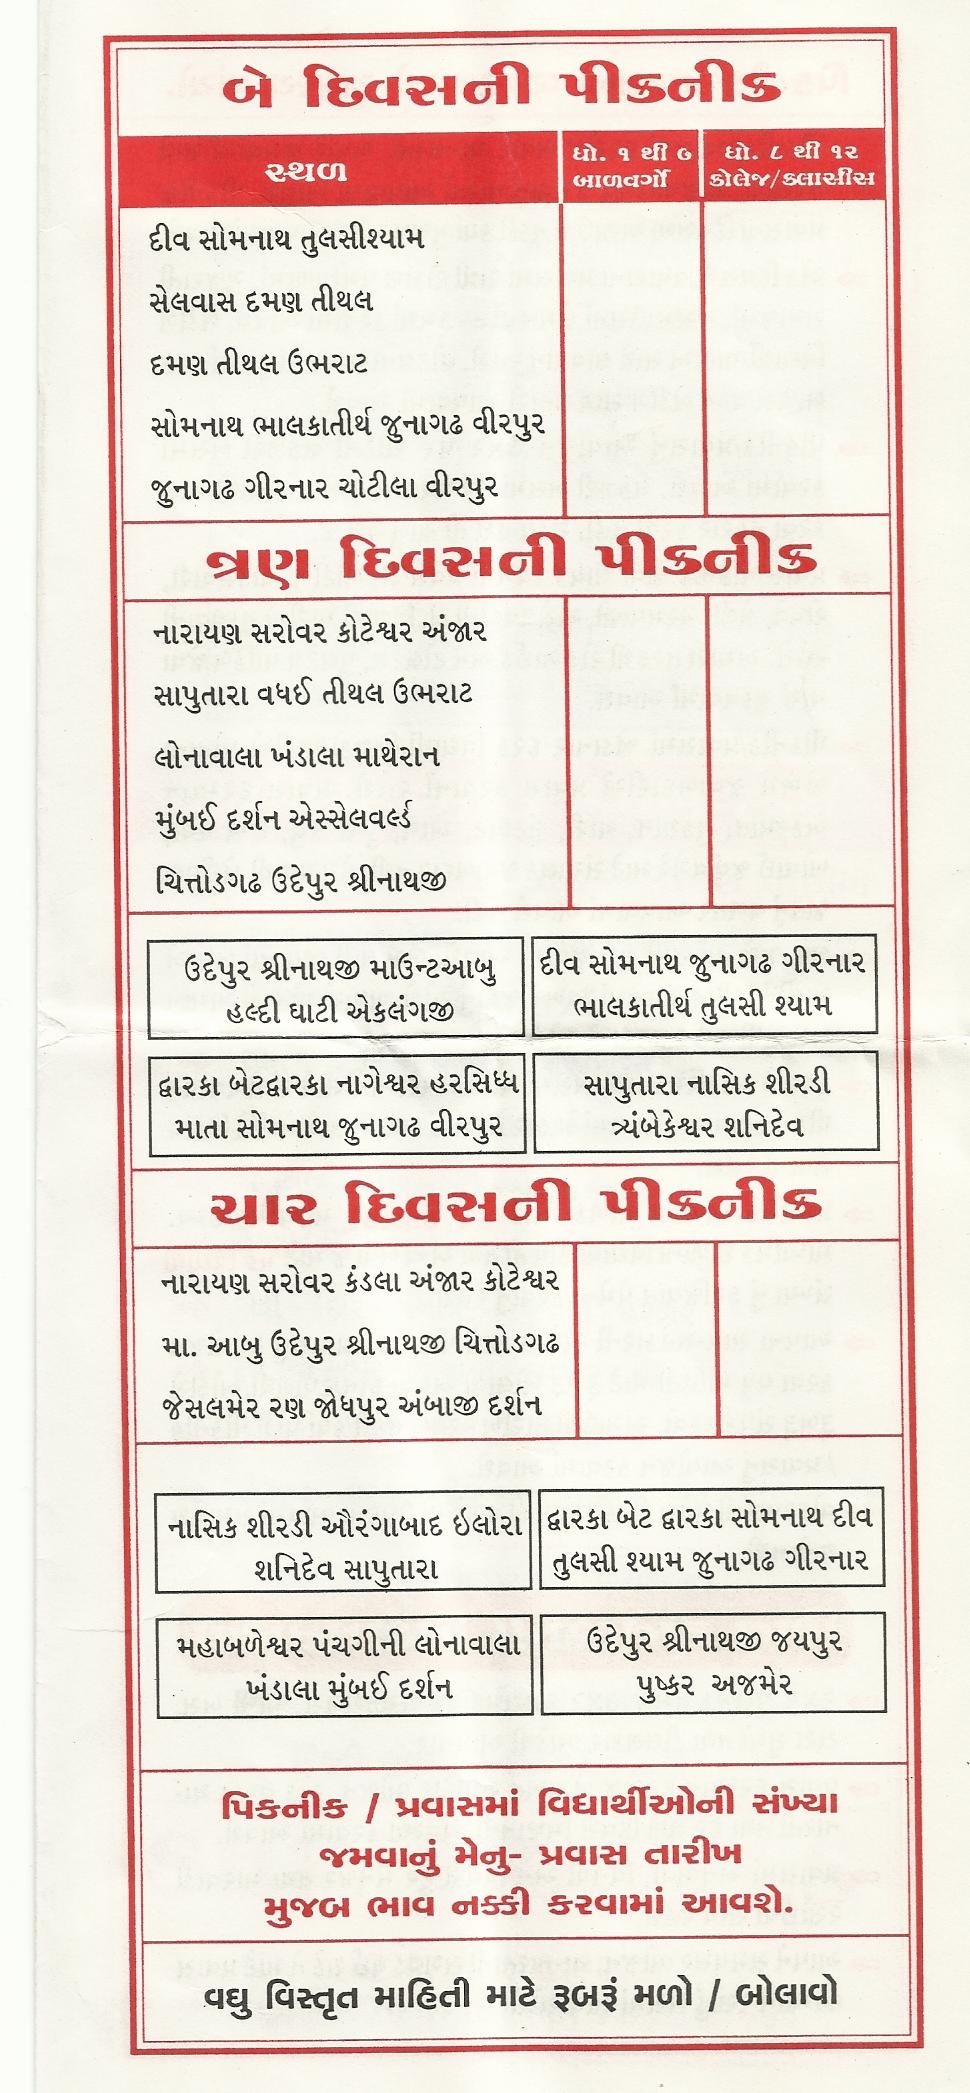 બે દિવસની પીકનીક
સ્થળ
ધો. ૧ થી ૭
બાળવર્ગો
ધો. ૮ થી ૧૨
કોલેજ/ક્લાસીસ
દીવ સોમનાથ તુલસીશ્યામ
સેલવાસ દમણ તીથલ
દમણ તીથલ ઉભરાટ
સોમનાથ ભાલકાતીર્થ જુનાગઢ વીરપુર
જુનાગઢ ગીરનાર ચોટીલા વીરપુર
ત્રણ દિવસની પીકનીક
નારાયણ સરોવર કોટેશ્વર અંજાર
સાપુતારા વધઈ તીથલ ઉભરાટ
લોનાવાલા ખંડાલા માથેરાન
મુંબઈ દર્શન એસ્સેલવર્લ્ડ
ચિત્તોડગઢ ઉદેપુર શ્રીનાથજી
ઉદેપુર શ્રીનાથજી માઉન્ટઆબુ
હલ્દી ઘાટી એકલંગજી
દીવ સોમનાથ જુનાગઢ ગીરનાર
ભાલકાતીર્થ તુલસી શ્યામ
દ્વારકા બેટદ્વારકા નાગેશ્વર હરસિધ્ધ
માતા સોમનાથ જુનાગઢ વીરપુર
સાપુતારા નાસિક શીરડી
ત્ર્યંબેકેશ્વર શનિદેવ
ચાર દિવસની પીકનીક
નારાયણ સરોવર કંડલા અંજાર કોટેશ્વર
મા. આબુ ઉદેપુર શ્રીનાથજી ચિત્તોડગઢ
જેસલમેર રણ જોધપુર અંબાજી દર્શન
નાસિક શીરડી ઔરંગાબાદ ઇલોરા
શનિદેવ સાપુતારા
દ્વારકા બેટ દ્વારકા સોમનાથ દીવ
તુલસી શ્યામ જુનાગઢ ગીરનાર
મહાબળેશ્વર પંચગીની લોનાવાલા
ખંડાલા મુંબઈ દર્શન
ઉદેપુર શ્રીનાથજી જયપુર
પુષ્કર અજમેર
પિકનીક / પ્રવાસમાં વિદ્યાર્થીઓની સંખ્યા
જમવાનું મેનુ- પ્રવાસ તારીખ
મુજબ ભાવ નક્કી કરવામાં આવશે.
વઘુ વિસ્તૃત માહિતી માટે રૂબરૂં મળો / બોલાવો